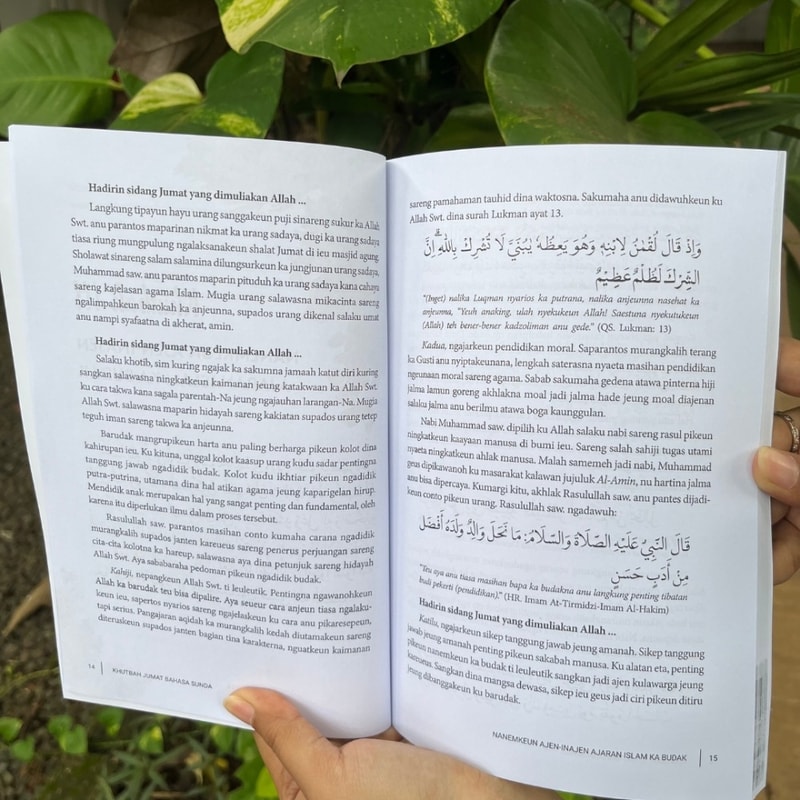 Hadirin sidang Jumat yang dimuliakan Allah ...
Langkung tipayun hayu urang sanggakeun puji sinareng sukur ka Allah
Swt. anu parantos maparinan nikmat ka urang sadaya, dugi ka urang sadaya
tiasa riung mungpulung ngalaksanakeun shalat Jumat di ieu masjid agung.
Sholawat sinareng salam salamina dilungsurkeun ka jungjunan urang sadaya,
Muhammad saw. anu parantos maparin pituduh ka urang sadaya kana cahaya
sareng kajelasan agama Islam. Mugia urang salawasna mikacinta sareng
ngalimpahkeun barokah ka anjeunna, supados urang dikenal salaku umat
anu nampi syafaatna di akherat, amin.
Hadirin sidang Jumat yang dimuliakan Allah ...
Salaku khotib, sim kuring ngajak ka sakumna jamaah katut diri kuring
sangkan salawasna ningkatkeun kaimanan jeung katakwaan ka Allah Swt.
ku cara takwa kana sagala parentah-Na jeung ngajauhan larangan-Na. Mugia
Allah Swt. salawasna maparin hidayah sareng kakiatan supados urang tetep
teguh iman sareng takwa ka anjeunna.
Barudak mangrupikeun harta anu paling berharga pikeun kolot dina
kahirupan ieu. Ku kituna, unggal kolot kaasup urang kudu sadar pentingna
tanggung jawab ngadidik budak. Kolot kudu ikhtiar pikeun ngadidik
putra-putrina, utamana dina hal atikan agama jeung kaparigelan hirup.
Mendidik anak merupakan hal yang sangat penting dan fundamental, oleh
karena itu diperlukan ilmu dalam proses tersebut.
Rasulullah saw. parantos masihan conto kumaha carana ngadidik
murangkalih supados janten kareueus sareng penerus perjuangan sareng
cita-cita kolotna ka hareup, salawasna aya dina petunjuk sareng hidayah
Allah Swt. Aya sababaraha pedoman pikeun ngadidik budak.
Kahiji, nepangkeun Allah Swt. ti leuleutik. Pentingna ngawanohkeun
Allah ka barudak teu bisa dipalire. Aya seueur cara anjeun tiasa ngalaku-
keun ieu, sapertos nyarios sareng ngajelaskeun ku cara anu pikaresepeun,
tapi serius. Pangajaran aqidah ka murangkalih kedah diutamakeun sareng
diteruskeun supados janten bagian tina karakterna, nguatkeun kaimanan
14 | KHUTBAH JUMAT BAHASA SUNDA
sareng pamahaman tauhid dina waktosna. Sakumaha anu didawuhkeun ku
Allah Swt. dina surah Lukman ayat 13.
وَاِذْ قَالَ لُقْمٰنُ لِابْنِهٖ وَهُوَ يَعِظُهٗ يٰبُنَيَّ لَا تُشْرِكْ بِاللّٰهِ ۗاِنَّ
الشِّرْكَ لَظُلْمٌ عَظِيْمٌ
"(Inget) nalika Luqman nyarios ka putrana, nalika anjeunna nasehat ka
anjeunna, "Yeuh anaking, ulah nyekukeun Allah! Saestuna nyekutukeun
(Allah) teh bener-bener kadzoliman anu gede." (QS. Lukman: 13)
Kadua, ngajarkeun pendidikan moral. Saparantos murangkalih terang
ka Gusti anu nyiptakeunana, lengkah saterasna nyaeta masihan pendidikan
ngeunaan moral sareng agama. Sabab sakumaha gedena atawa pinterna hiji
jalma lamun goreng akhlakna moal jadi jalma hade jeung moal diajenan
salaku jalma anu berilmu atawa boga kaunggulan.
Nabi Muhammad saw. dipilih ku Allah salaku nabi sareng rasul pikeun
ningkatkeun kaayaan manusa di bumi ieu. Sareng salah sahiji tugas utami
nyaeta ningkatkeun ahlak manusa. Malah samemeh jadi nabi, Muhammad
geus dipikawanoh ku masarakat kalawan jujuluk Al-Amin, nu hartina jalma
anu bisa dipercaya. Kumargi kitu, akhlak Rasulullah saw. anu pantes dijadi-
keun conto pikeun urang. Rasulullah saw. ngadawuh:
قَالَ النَّبِيُّ عَلَيْهِ الصَّلَاةُ وَالسَّلَامُ: مَا نَحَلَ وَالِدٌ وَلَدَهُ أَفْضَلَ
مِنْ أَدَبٍ حَسَنٍ
"Teu aya anu tiasa masihan bapa ka budakna anu langkung penting tibatan
budi pekerti (pendidikan)." (HR. Imam At-Tirmidzi-Imam Al-Hakim)
Hadirin sidang Jumat yang dimuliakan Allah ...
Katilu, ngajarkeun sikep tanggung jawab jeung amanah. Sikep tanggung
jawab jeung amanah penting pikeun sakabah manusa. Ku alatan eta, penting
pikeun nanemkeun ka budak ti leuleutik sangkan jadi ajen kulawarga jeung
karueus. Sangkan dina mangsa dewasa, sikep ieu geus jadi ciri pikeun ditiru
jeung dibanggakeun ku barudak.
NANEMKEUN AJEN-INAJEN AJARAN ISLAM KA BUDAK | 15